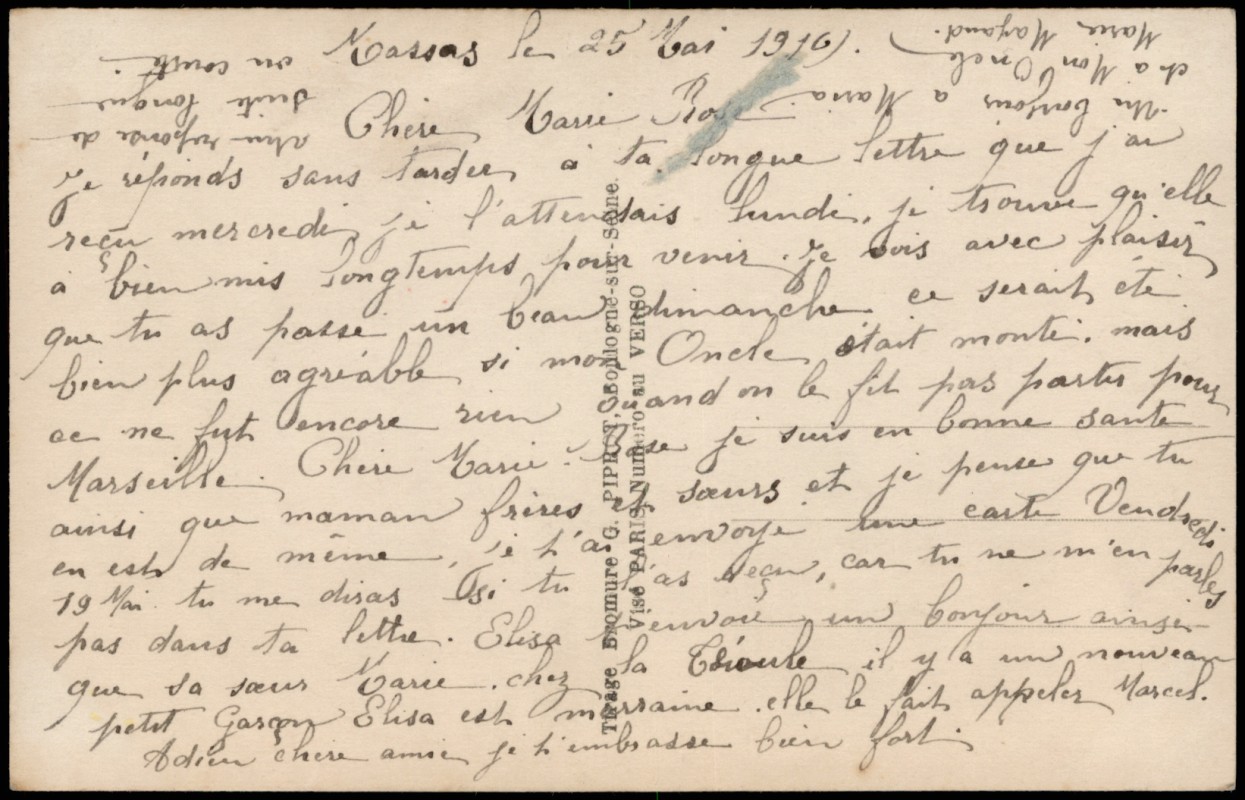 Massas le 25 Mai 1916.
Chère Marie Rose
Je réponds sans tarder à ta longue lettre que j'ai
reçu mercredi, je l'attendais lundi, je trouve qu'elle
a bien mis longtemps pour venir. Je vois avec plaisir
que tu as passé un beau dimanche ce serait été
bien plus agréable si mon Oncle était monté. mais
ce ne fut encore rien quand on le fit pas partir pour
Marseille. Chère Marie-Rose je suis en bonne santé
ainsi que maman frères et sœurs et je pense que tu
en est de même, je t'ai envoyé une carte Vendredi
19 Mai tu me diras si tu l'as reçu, car tu ne m'en parles
pas dans ta lettre. Elisa t'envoie un bonjour ainsi
que sa sœur Marie. chez la il y a un nouveau
petit Garçon Elisa est marraine. elle le fait appeler Marcel.
Adieu chère amie je t'embrasse bien fort.
Une réponse de
suite longue
ou courte.
Un bonjour a Maria
et a Mon Oncle
Marie
Tirage Bromure G. PIPROT, Boulogne-sur-Seine.
Visé PARIS, Numéro au VERSO